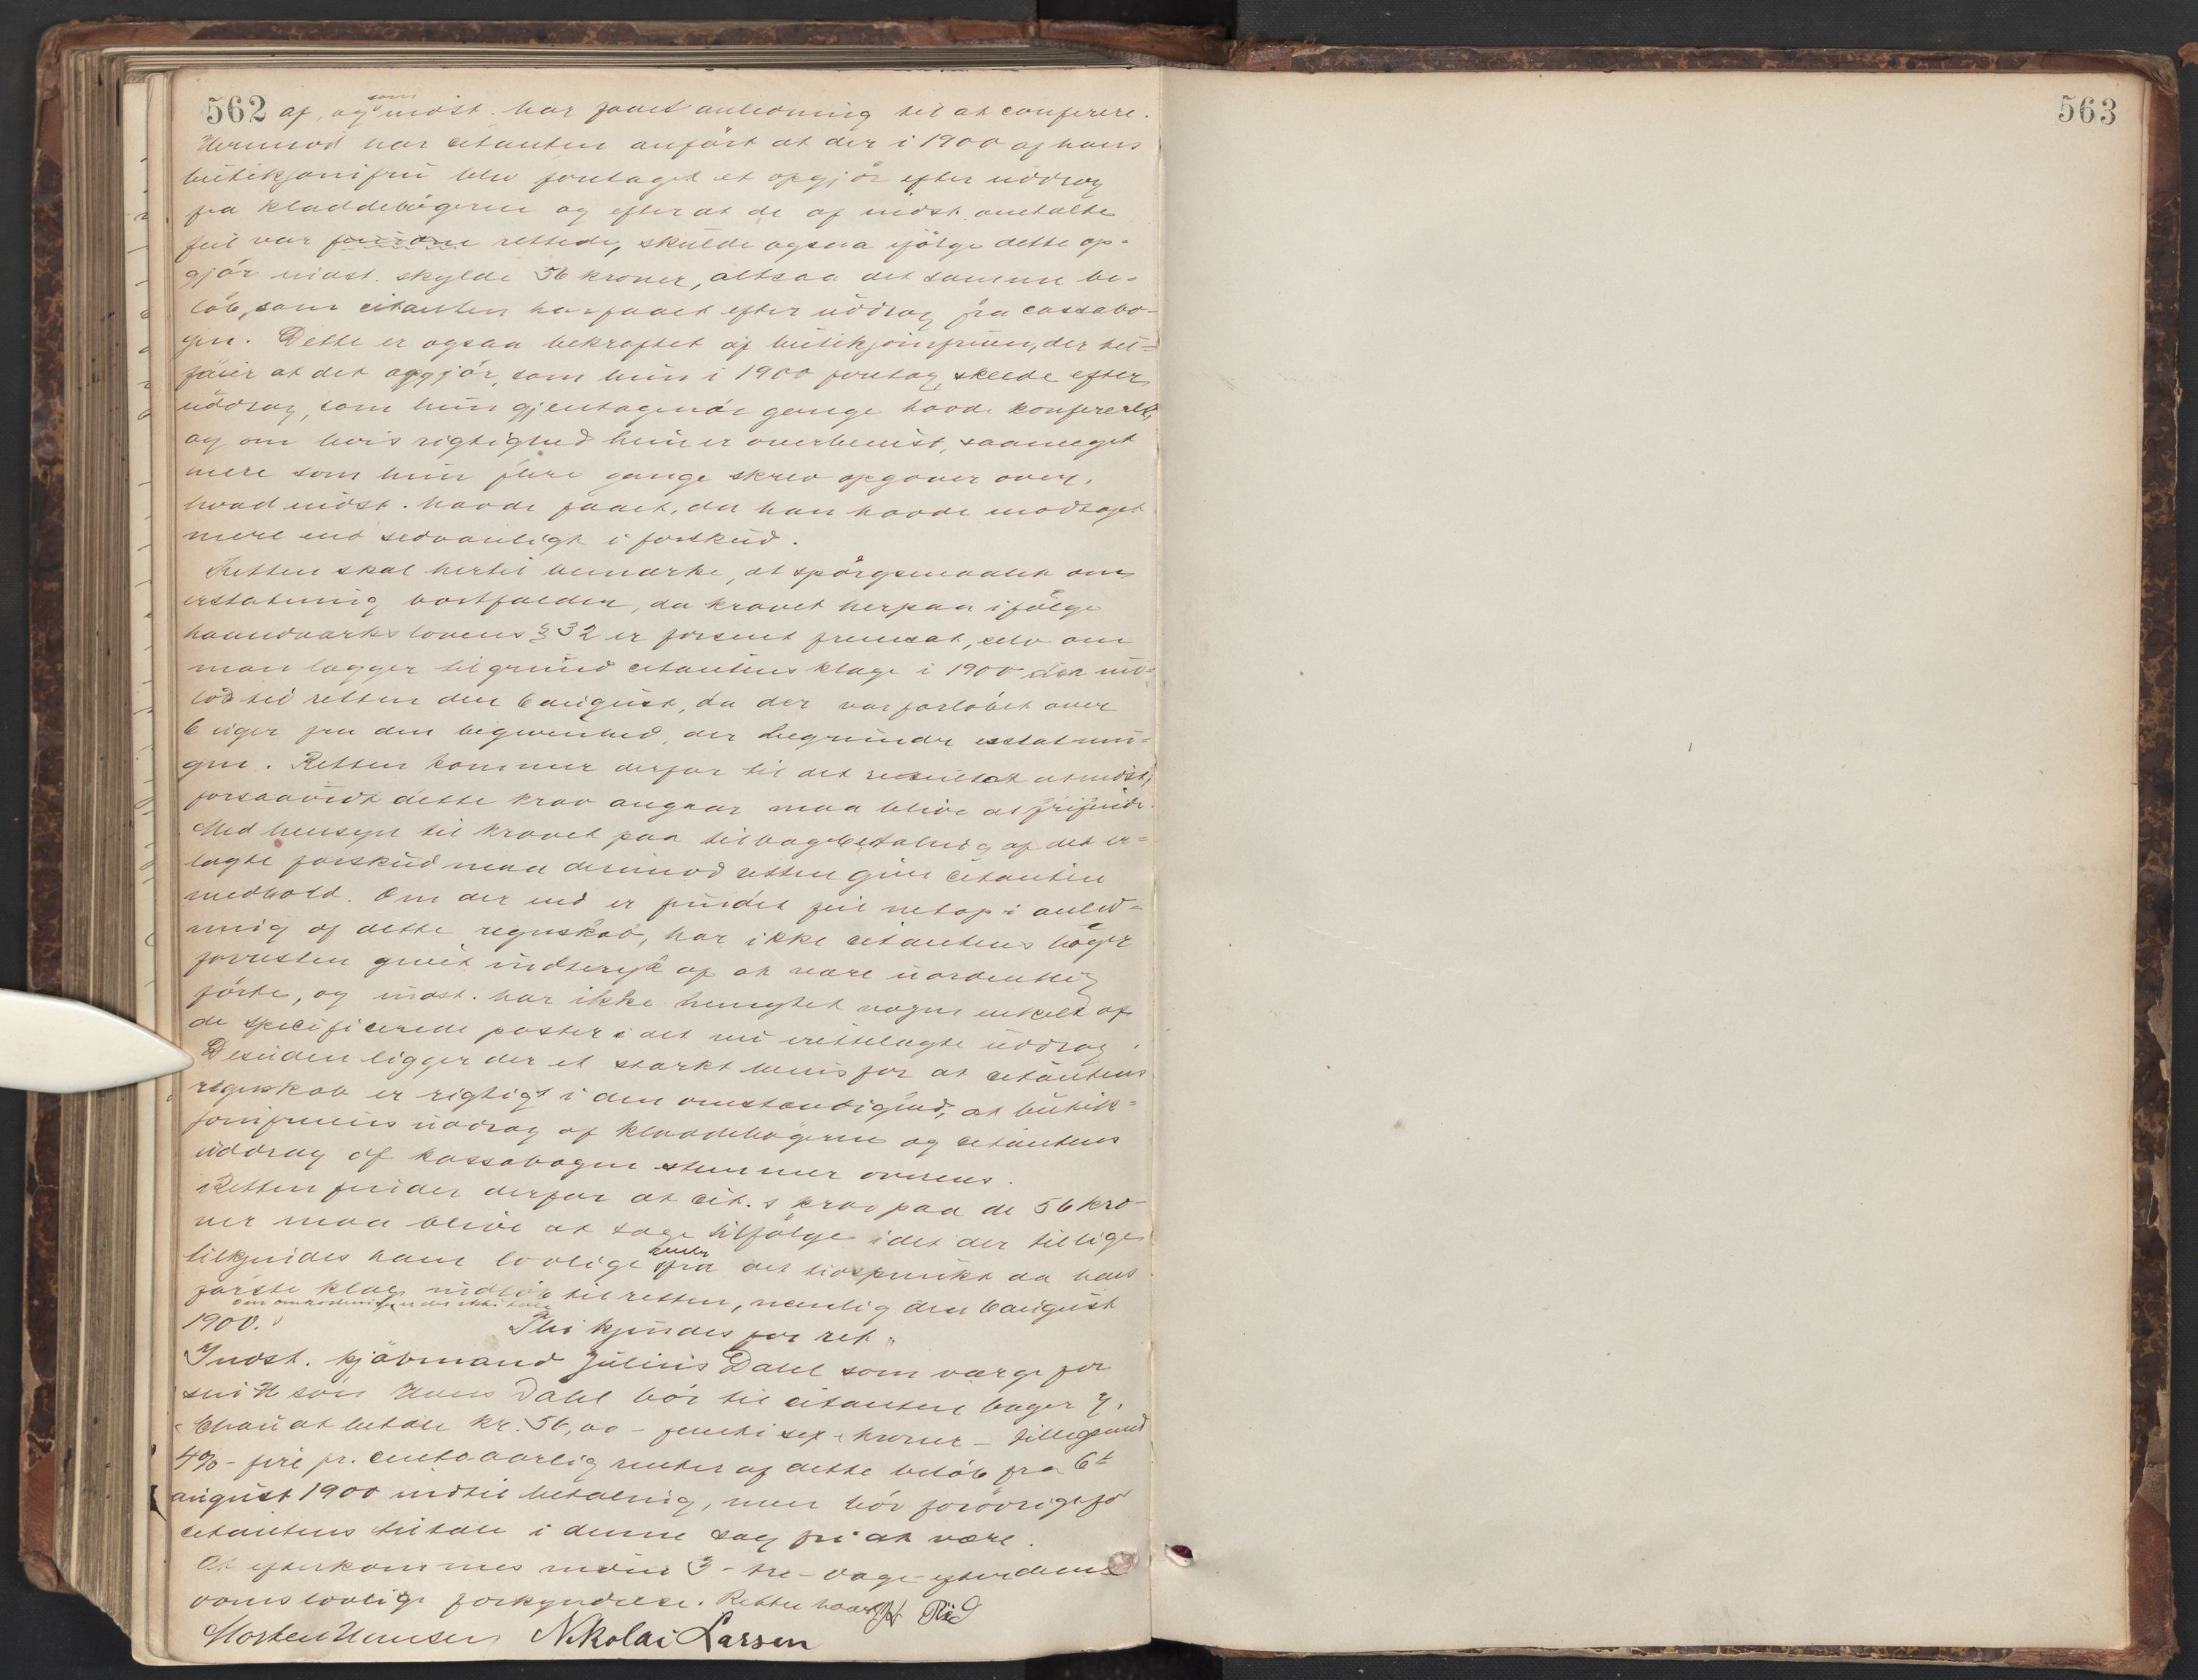 562 af, og som indst. har faaet anledning til at conferere.
Herimod har citanten anført at der i 1900 af hans
butikjomfru blev foretaget et opgjør efter uddrag
fra kladdebøgerne og efter at de af indst. omtalte
feil var rettede, skulde ogsaa ifølge dette op-
gjør indst. skylde 56 kroner, altsaa det samme be-
løb, som citanten har faaet efter uddrag fra cassabo-
gen. Dette er ogsaa bekræftet af butikjomfruen, der til=
føier at det opgjør, som hun i 1900 foretog, skeede efter
uddrag, som hun gjentagende gange havde konfereret,
og om hvis rigtighed hun er overbevist, saameget
mere som hun flere gange skrev opgaver over,
hvad indst. havde faaet, da han havde modtaget
mere end sedvanligt i forskud.
Retten skal hertil bemærke, at spørgsmaalet om
erstatning bortfalder, da kravet herpaa ifølge
haandværkslovens § 32 er forsent fremsat, selv om
man lægger til grund citantens klage i 1900 der ind-
løb til retten den 6 august, da der var forløbet over
6 uger fra den begivenhed, der begrunder erstatnin=
gen. Retten kommer derfor til det resultat at indst,
forsaavidt dette krav angaar maa blive at frifinde.
Med hensyn til kravet paa tilbagebetaling af det er=
lagte forskud maa derimod retten give citanten
medhold. Om der end er fundet feil netop i anled=
ning af dette regnskab, har ikke citantens bøger
forresten givet indtryk af at være uordentlig
førte, og indst. har ikke benegtet nogen enkelt af
de specificerede poster i det nu fremlagte uddrag.
Desuden ligger der et stærkt bevis for at citantens
regnskab er rigtigt i den omstændighed, at butik=
jomfruens uddrag af kladdebøgerne og citantens
uddrag af kassabogen stemmer overens.
Retten finder derfor at cit.s krav paa de 56 kro-
ner maa blive at tage tilfølge idet der tillige
tilkjendes ham lovlige renter fra det tidspunkt da hans
første klage indløb til retten, nemlig den 6 august
1900. Thi kjendes for ret:
Indst. kjøbmand Julius Dahl som værge for
sin søn Hans Dahl bør til citanten bager
at betale kr. 56,00 - femti sex kroner - tilligemed
4% - fire pr. cento aarlig renter af dette beløb fra 6te
august 1900 indtil betaling, men bør forøvrigt for
citantens tiltale i denne sag fri at være.
At efterkommes inden 3 - tre - dage efter denne
doms lovlige forkyndelse. Retten hævet
Morten Hansen Nikolai Larsen
563